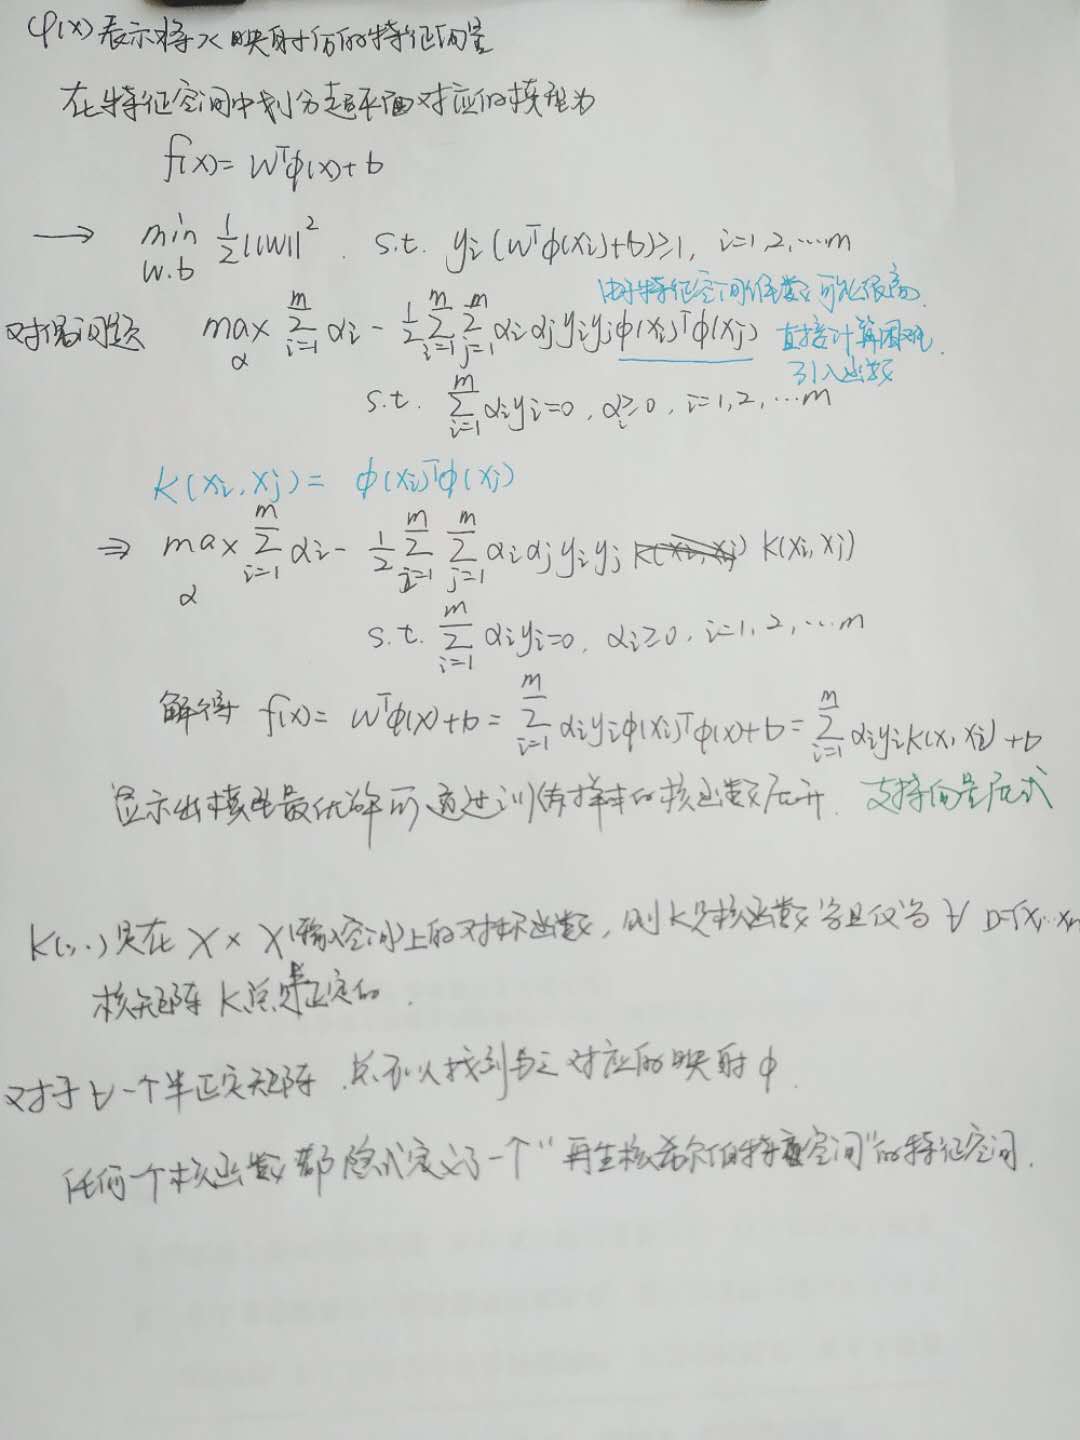 φ(x)表示将x映射后的特征向量
在特征空间中划分超平面对应的模型为
f(x)= wᵀφ(x)+b
→ min w.b 1/2||w||². s.t. yi(wᵀφ(xi)+b)≥1, i=1,2,…m
由于特征空间维数可能很高.
对偶问题 max α Σ_{i=1}^{m} αi - 1/2 Σ_{i=1}^{m} Σ_{j=1}^{m} αiαjyiyjφ(xi)ᵀφ(xj) 直接计算困难.
引入函数
s.t. Σ_{i=1}^{m} αiyi=0, αi≥0, i=1,2,…m
K(xi,xj)= φ(xi)ᵀφ(xj)
⇒ max α Σ_{i=1}^{m} αi - 1/2 Σ_{i=1}^{m} Σ_{j=1}^{m} αiαjyiyj K(xi,xj)
s.t. Σ_{i=1}^{m} αiyi=0, αi≥0, i=1,2,…m
解得 f(x)= wᵀφ(x)+b = Σ_{i=1}^{m} αiyiφ(xi)ᵀφ(x)+b = Σ_{i=1}^{m} αiyiK(x,xi)+b
显示出模型最优解可通过训练样本的核函数展开. 支持向量展式
K(·,·)是在 X×X(输入空间)上的对称函数, 则K是核函数当且仅当 ∀ D={x1…xm
核矩阵K总是半正定的.
对于∀一个半正定矩阵.总可以找到与之对应的映射φ.
任何一个核函数都隐式定义了一个“再生核希尔伯特空间”的特征空间.